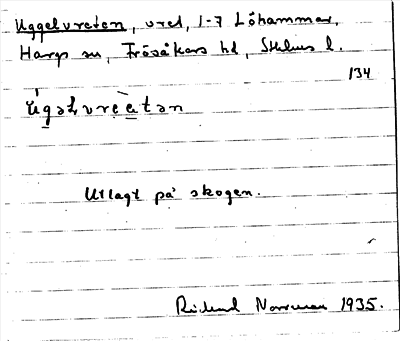 Uggelvreten, vret, 1-7 Löhammar,
Hargs sn, Frösåkers hd, Sthlms l.
134
ùgəlvrèetən
Utlagt på skogen.
Rickard Norrman 1935.